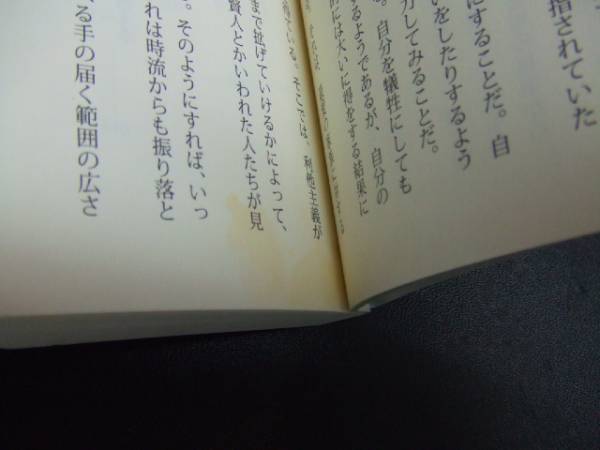 指されていた
にすることだ。自
いをしたりするよう
力してみることだ。
。自分を犠牲にしても
するようであるが、自分の
的には大いに得をする結果に
ている。そこでは、利他主義が
まで拡げていけるかによって、
賢人とかいわれた人たちが見
。そのようにすれば、いっ
れは時流からも振り落と
る手の届く範囲の広さ